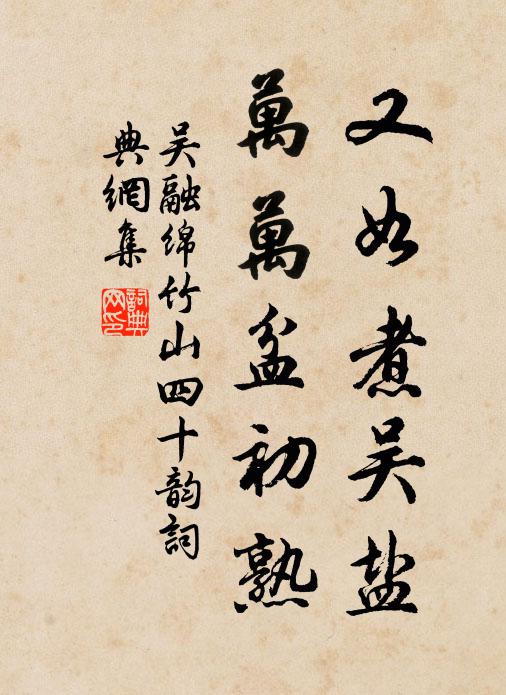 又如煮吴盐
萬萬盆初熟
吴融绵竹山四十韵詞
典網集
詞典网印